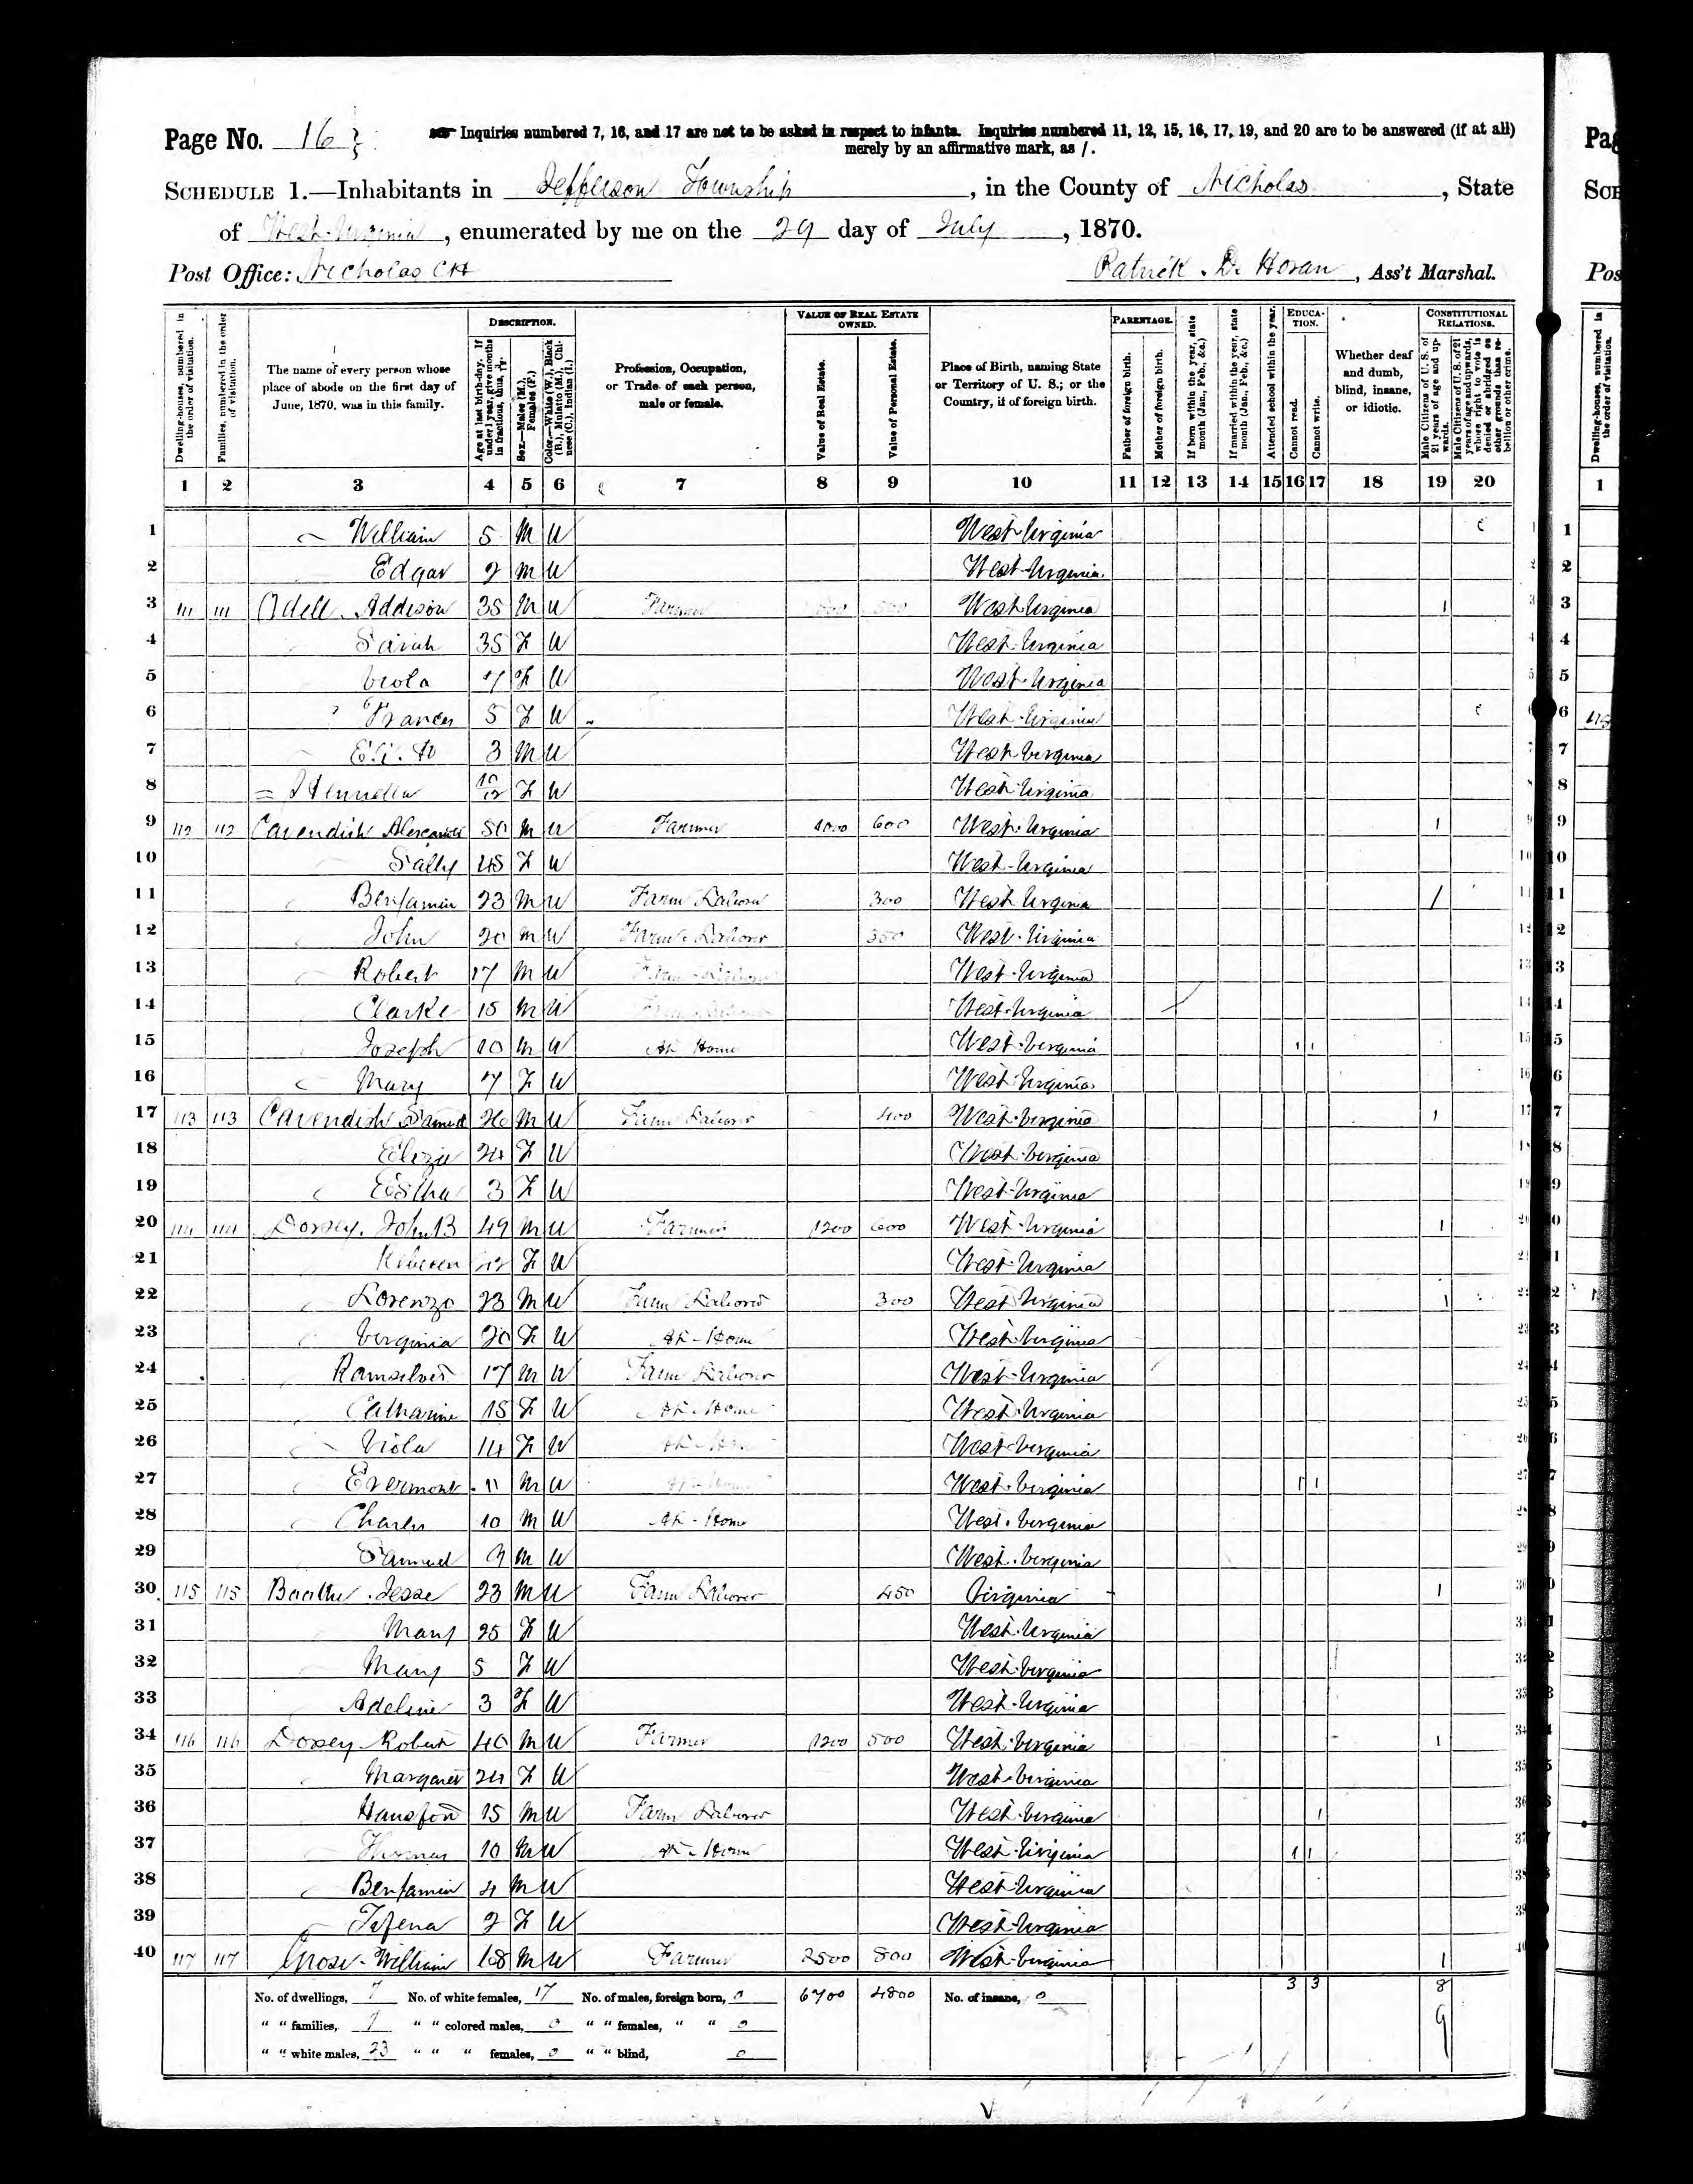 Page No. 16
Inquiries numbered 7, 16, and 17 are not to be asked in respect to infants. Inquiries numbered 11, 12, 15, 16, 17, 19, and 20 are to be answered (if at all)
merely by an affirmative mark, as /.
SCHEDULE 1.—Inhabitants in Jefferson Township, in the County of Nicholas, State
of West Virginia, enumerated by me on the 29 day of July, 1870.
Post Office: Nicholas CH
Patrick. D. Horan, Ass't Marshal.
Dwelling-houses, numbered in the order of visitation.
Families, numbered in the order of visitation.
The name of every person whose place of abode on the first day of June, 1870, was in this family.
DESCRIPTION.
Age at last birth-day. If under 1 year, give months in fractions, thus, 3/12.
Sex.—Males (M.), Females (F.)
Color.—White (W.), Black (B.), Mulatto (M.), Chinese (C.), Indian (I.)
Profession, Occupation, or Trade of each person, male or female.
VALUE OF REAL ESTATE OWNED.
Value of Real Estate.
Value of Personal Estate.
Place of Birth, naming State or Territory of U. S.; or the Country, if of foreign birth.
PARENTAGE.
Father of foreign birth.
Mother of foreign birth.
If born within the year, state month (Jan., Feb., &c.)
If married within the year, state month (Jan., Feb., &c.)
Attended school within the year.
EDUCATION.
Cannot read.
Cannot write.
Whether deaf and dumb, blind, insane, or idiotic.
CONSTITUTIONAL RELATIONS.
Male Citizens of U. S. of 21 years of age and upwards.
Male Citizens of U. S. of 21 years of age and upwards, whose right to vote is denied or abridged on other grounds than rebellion or other crime.
1 2 3 4 5 6 7 8 9 10 11 12 13 14 15 16 17 18 19 20
1 William 5 M W West Virginia
2 Edgar 2 M W West Virginia
3 111 111 Odell Addison 35 M W Farmer 800 500 West Virginia 1
4 Sarah 35 F W West Virginia
5 Viola 7 F W West Virginia
6 Frances 5 F W West Virginia
7 3 M W West Virginia
8 10/12 F W West Virginia
9 112 112 Cavendish 50 M W Farmer 1000 600 West Virginia 1
10 Sally 45 F W West Virginia
11 Benjamin 23 M W Farm Laborer 300 West Virginia 1
12 John 20 M W Farm Laborer 350 West Virginia
13 Robert 17 M W Farm Laborer West Virginia
14 Clarke 15 M W Farm Laborer West Virginia
15 Joseph 10 M W At Home West Virginia 1 1
16 Mary 7 F W West Virginia
17 113 113 Cavendish Samuel 26 M W Farm Laborer 400 West Virginia 1
18 Eliza 24 F W West Virginia
19 3 F W West Virginia
20 114 114 Dorsey. John B 49 M W Farmer 1200 600 West Virginia 1
21 Rebecca 42 F W West Virginia
22 Lorenzo 23 M W Farm Laborer 300 West Virginia 1
23 Verginia 20 F W At Home West Virginia
24 17 M W Farm Laborer West Virginia
25 Catharine 15 F W At Home West Virginia
26 Viola 14 F W At Home West Virginia
27 Evermont 11 M W At Home West Virginia 1 1
28 Charles 10 M W At Home West Virginia
29 Samuel 9 M W West Virginia
30 115 115 Jesse 23 M W Farm Laborer 450 Virginia 1
31 Mary 25 F W West Virginia
32 Mary 5 F W West Virginia
33 Adeline 3 F W West Virginia
34 116 116 Dorsey Robert 40 M W Farmer 1200 500 West Virginia 1
35 Margaret 24 F W West Virginia
36 Hansford 15 M W Farm Laborer West Virginia 1
37 Thomas 10 M W At Home West Virginia 1 1
38 Benjamin 4 M W West Virginia
39 2 F W West Virginia
40 117 117 Grose William M W Farmer 2500 800 West Virginia 1
No. of dwellings, 7 No. of white females, 17 No. of males, foreign born, 0 6700 4800 No. of insane, 0 3 3 8
" " families, 7 " " colored males, 0 " " females, " " 0 9
" " white males, 23 " " " females, 0 " " blind, 0